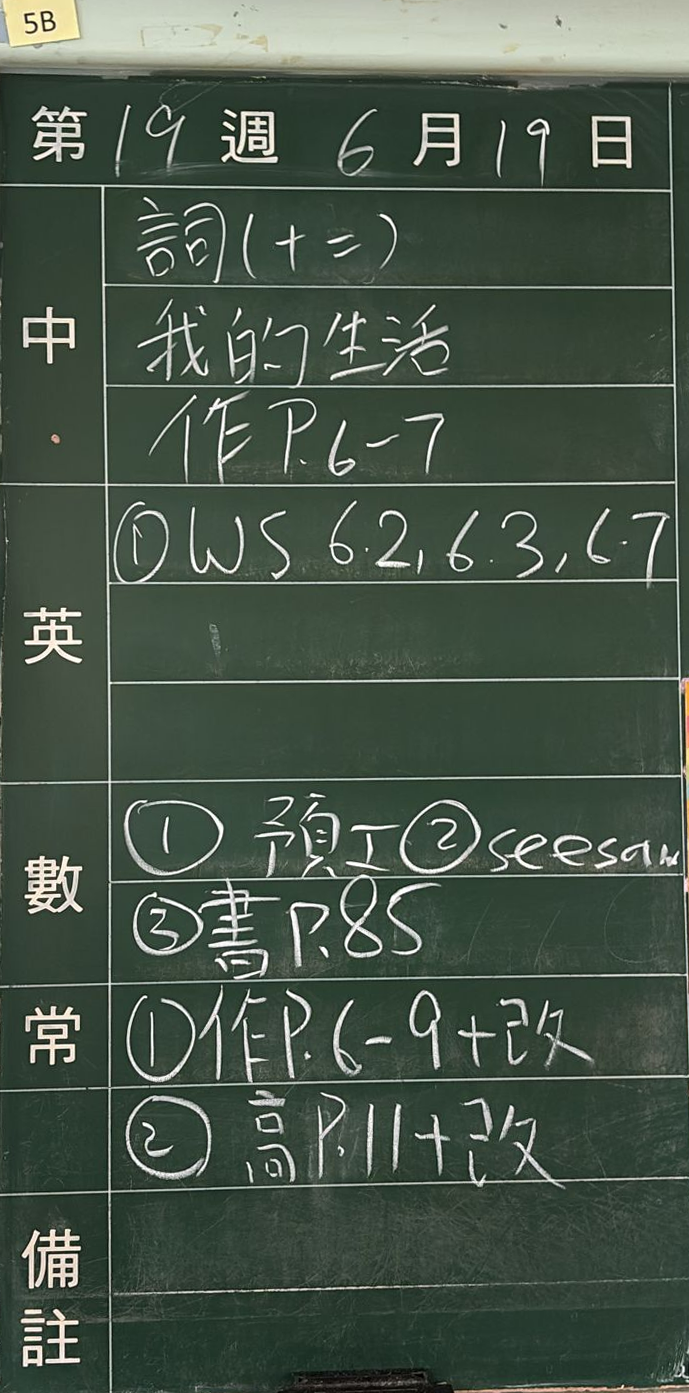 5B
第19週 6月19日
中
詞(十二)
我的生活
作P.6-7
英
①WS 6.2, 6.3, 6.7
數
① 預工②seesaw
③書P.85
常
①作P.6-9+改
② 高P.11+改
備註